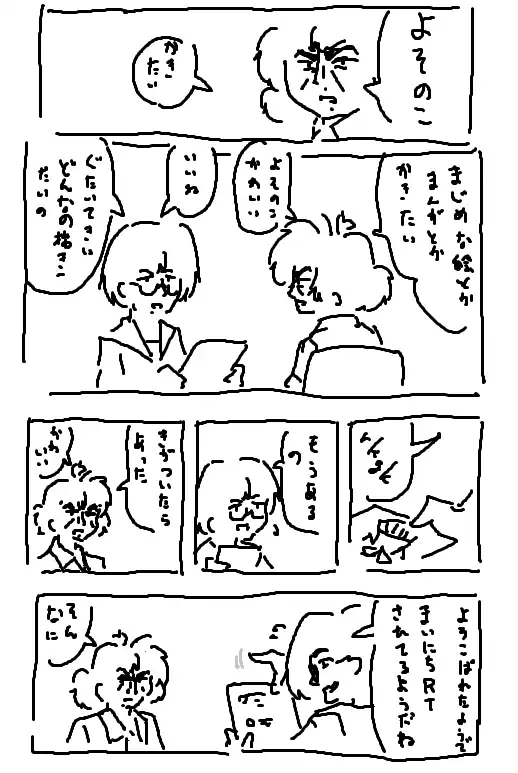 よそのこ
かきたい
まじめな絵とか
まんがとか
かきたい
よそのこ
かわいい
いいね
ぐたいてきに
どんなの描きたいの
そうある
の
きづいたら
あった
かわいい
よろこばれたようで
まいにちRT
されてるようだね
そん
なに